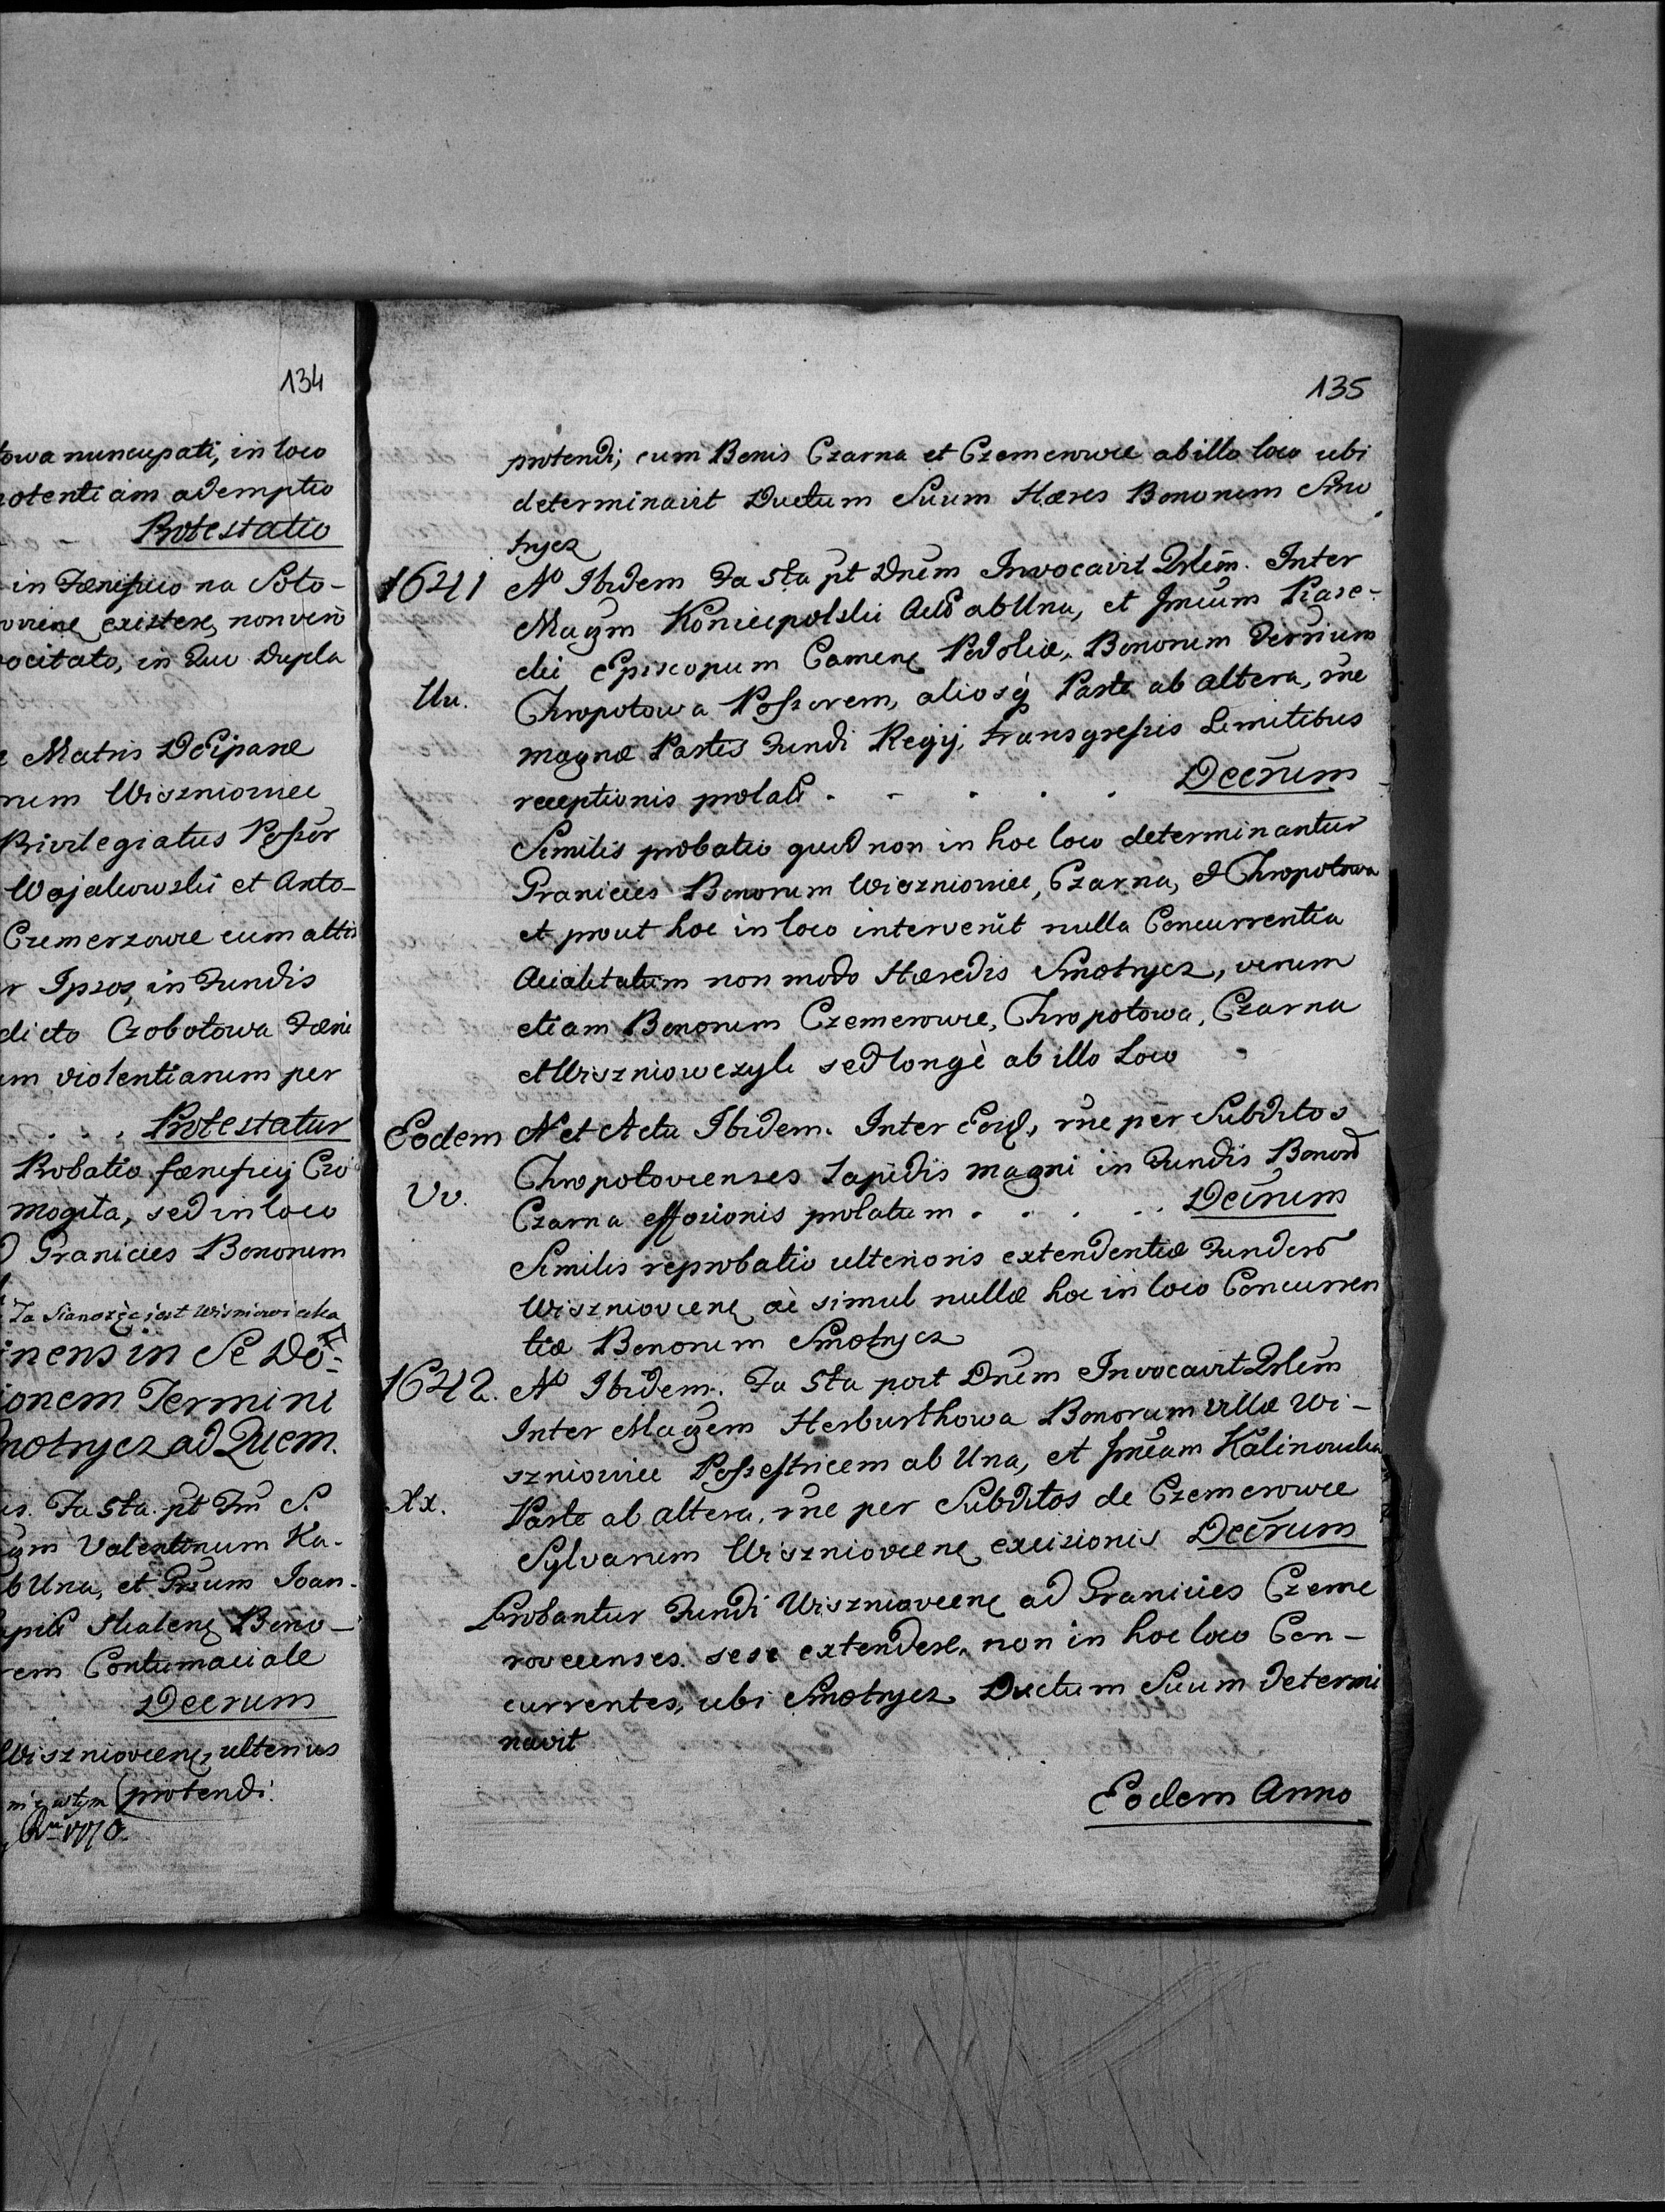 134
towa nuncupati, in loco
potentiam ademptio
Protestatio
in Fænifucio na Soło-
existere, non vero
vocitato, in Duo Dupla
Matris
rum Wiszniowiec
Privilegiatus Possor
Wojakowski et Anto-
Czemerzowce cum altis
r Ipsos, in Fundis
dicto Czobotowa Fæni
um violentiarum per
. . . Protestatur
Probatio fænificij Czo
mogiła, sed in loco
Granicies Bonorum
Ta Sianożęć jest Wiszniowiecka
inens in Se Do=
ionem Termini
motrycz ad Quem.
Fa 5ta pt Fm S.
gym Valentinum Ka-
b Una, et Joan-
Bono-
rem Contumaciale
Decrum
Wiszniovien, ulterius
protendi.
135
protendi; cum Bonis Czarna et Czemerowce ab illo loco ubi
determinavit Ductum Suum Hæres Bonorum Smo
trycz
1641 Ao Ibidem Fa 5ta pt Dnem Invocavit Qrlem. Inter
Magm Koniecpolski ab Una, et Jmeum Piase-
cki Episcopum Camene Podoliæ, Bonorum
Uu. Chropotowa Possorem, aliosq Parte ab altera, rne
magnæ Partis Fundi Regij, transgressis Limitibus
receptionis prolati . - . . . Decrum
Similis probatio quod non in hoc loco determinantur
Granicies Bonorum Wiszniowiec, Czarna, & Chropotowa
et prout hoc in loco intervenit nulla Concurrentia
non modo Hæredis Smotrycz, verum
etiam Bonorum Czemerowce, Chropotowa, Czarna
et Wiszniowczyk sed longè ab illo Loco
Eodem A et Actu Ibidem. Inter Eosd, rne per Subditos
Vv. Chropotovienses Lapidis magni in Fundis Bonor
Czarna effosionis prolatum . . . . Decrum
Similis reprobatio ulterioris extendentiæ Fundorum
Wiszniovien ac simul nullæ hoc in loco Concurren
tiæ Bonorum Smotrycz
1642. Ao Ibidem. Fa 5ta post Dnem Invocavit Qrlem
Inter Magem Herburthowa Bonorum villæ Wi-
szniowiec Possestricem ab Una, et Jmeam Kalinowska
Xx. Parte ab altera, rne per Subditos de Czemerowce
Sylvarum Wiszniovien excisionis Decrum
Probantur Fundi Wiszniovien ad Granicies Czeme
rovecenses sese extendere, non in hoc loco Con-
currentes, ubi Smotrycz Ductum Suum determi
navit
Eodem Anno